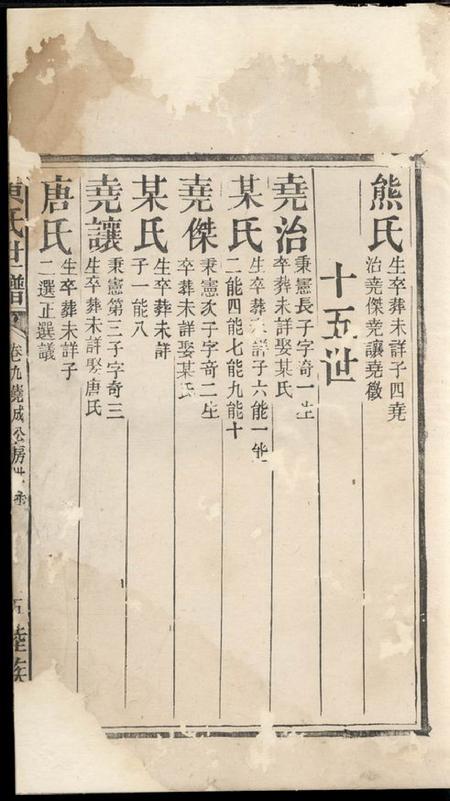 熊氏
生卒葬未詳子四堯
治堯傑堯讓堯徵
十五世
堯治
秉憲長子字奇一生
卒葬未詳娶某氏
某氏
生卒葬未詳子六能一能
二能四能七能九能十
堯傑
秉憲次子字奇二生
卒葬未詳娶某氏
某氏
生卒葬未詳
子一能八
堯讓
秉憲第三子字奇三
生卒葬未詳娶唐氏
唐氏
生卒葬未詳子
二選正選議
氏世譜
卷九堯成公房世
睦族